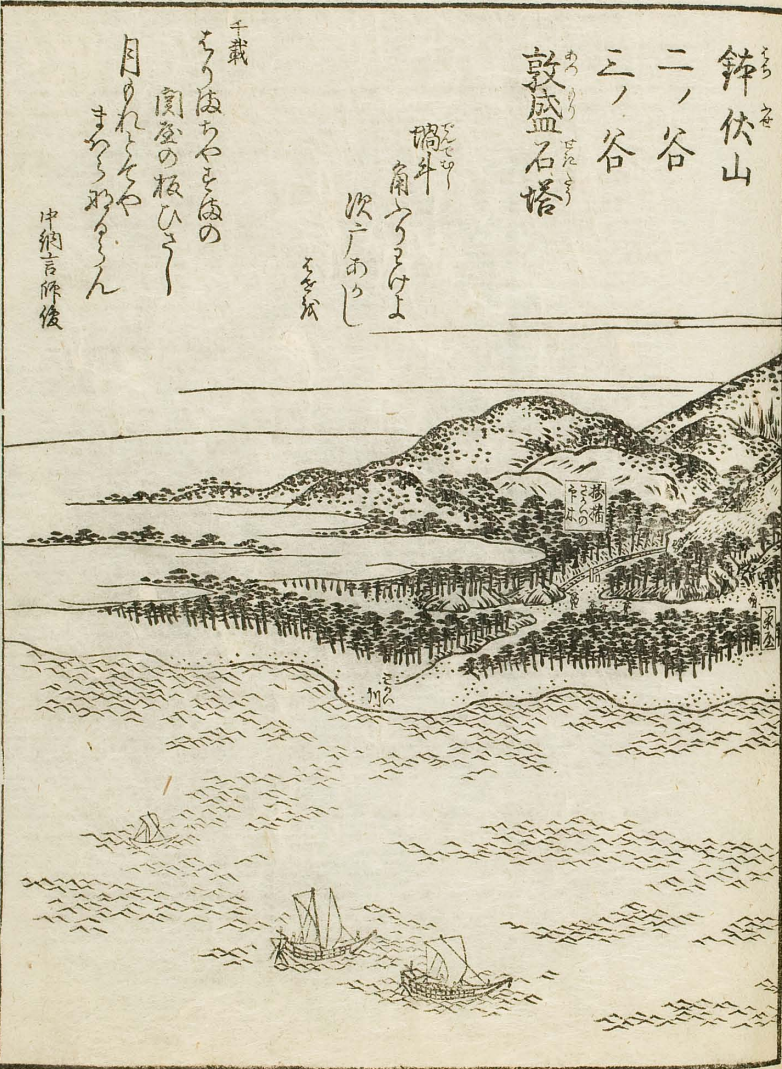 鉢伏山
二ノ谷
三ノ谷
敦盛石塔
蝸牛
角ふりわけよ
須广あかし
はせを
千載
はりまちやすまの
関屋の板ひさし
月もれとてや
まはらなるらん
中納言師俊
播磨
さかひの
さかい
川